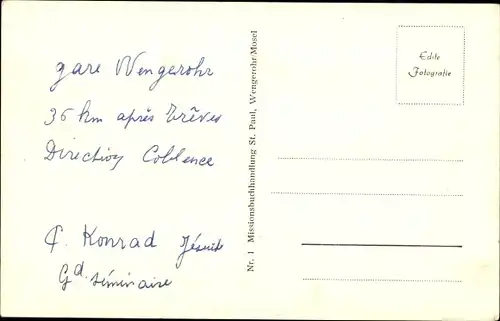 gare Wengerohr
36 km après Trêves
Direction Coblence
P. Konrad Jésuite
Gd. séminaire
Nr. 1 Missionsbuchhandlung St. Paul, Wengerohr/Mosel
Echte
Fotografie